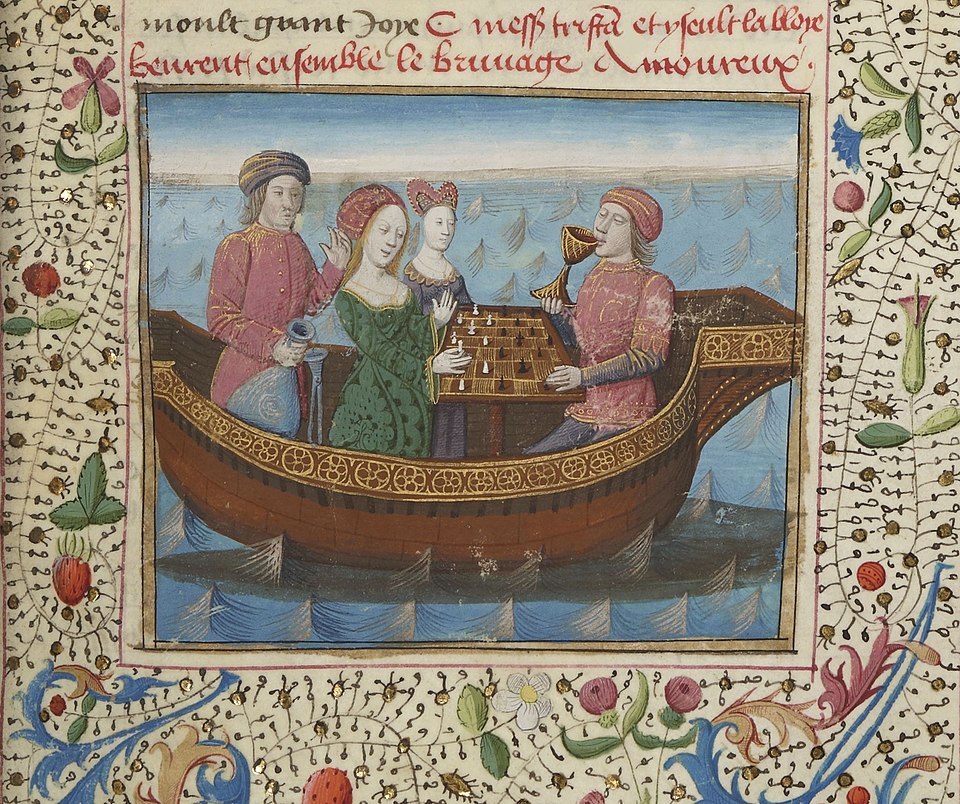 moult grant Joye C mess tristã et yseult la bloye
beurent ensemble le bruuage Amoureux .